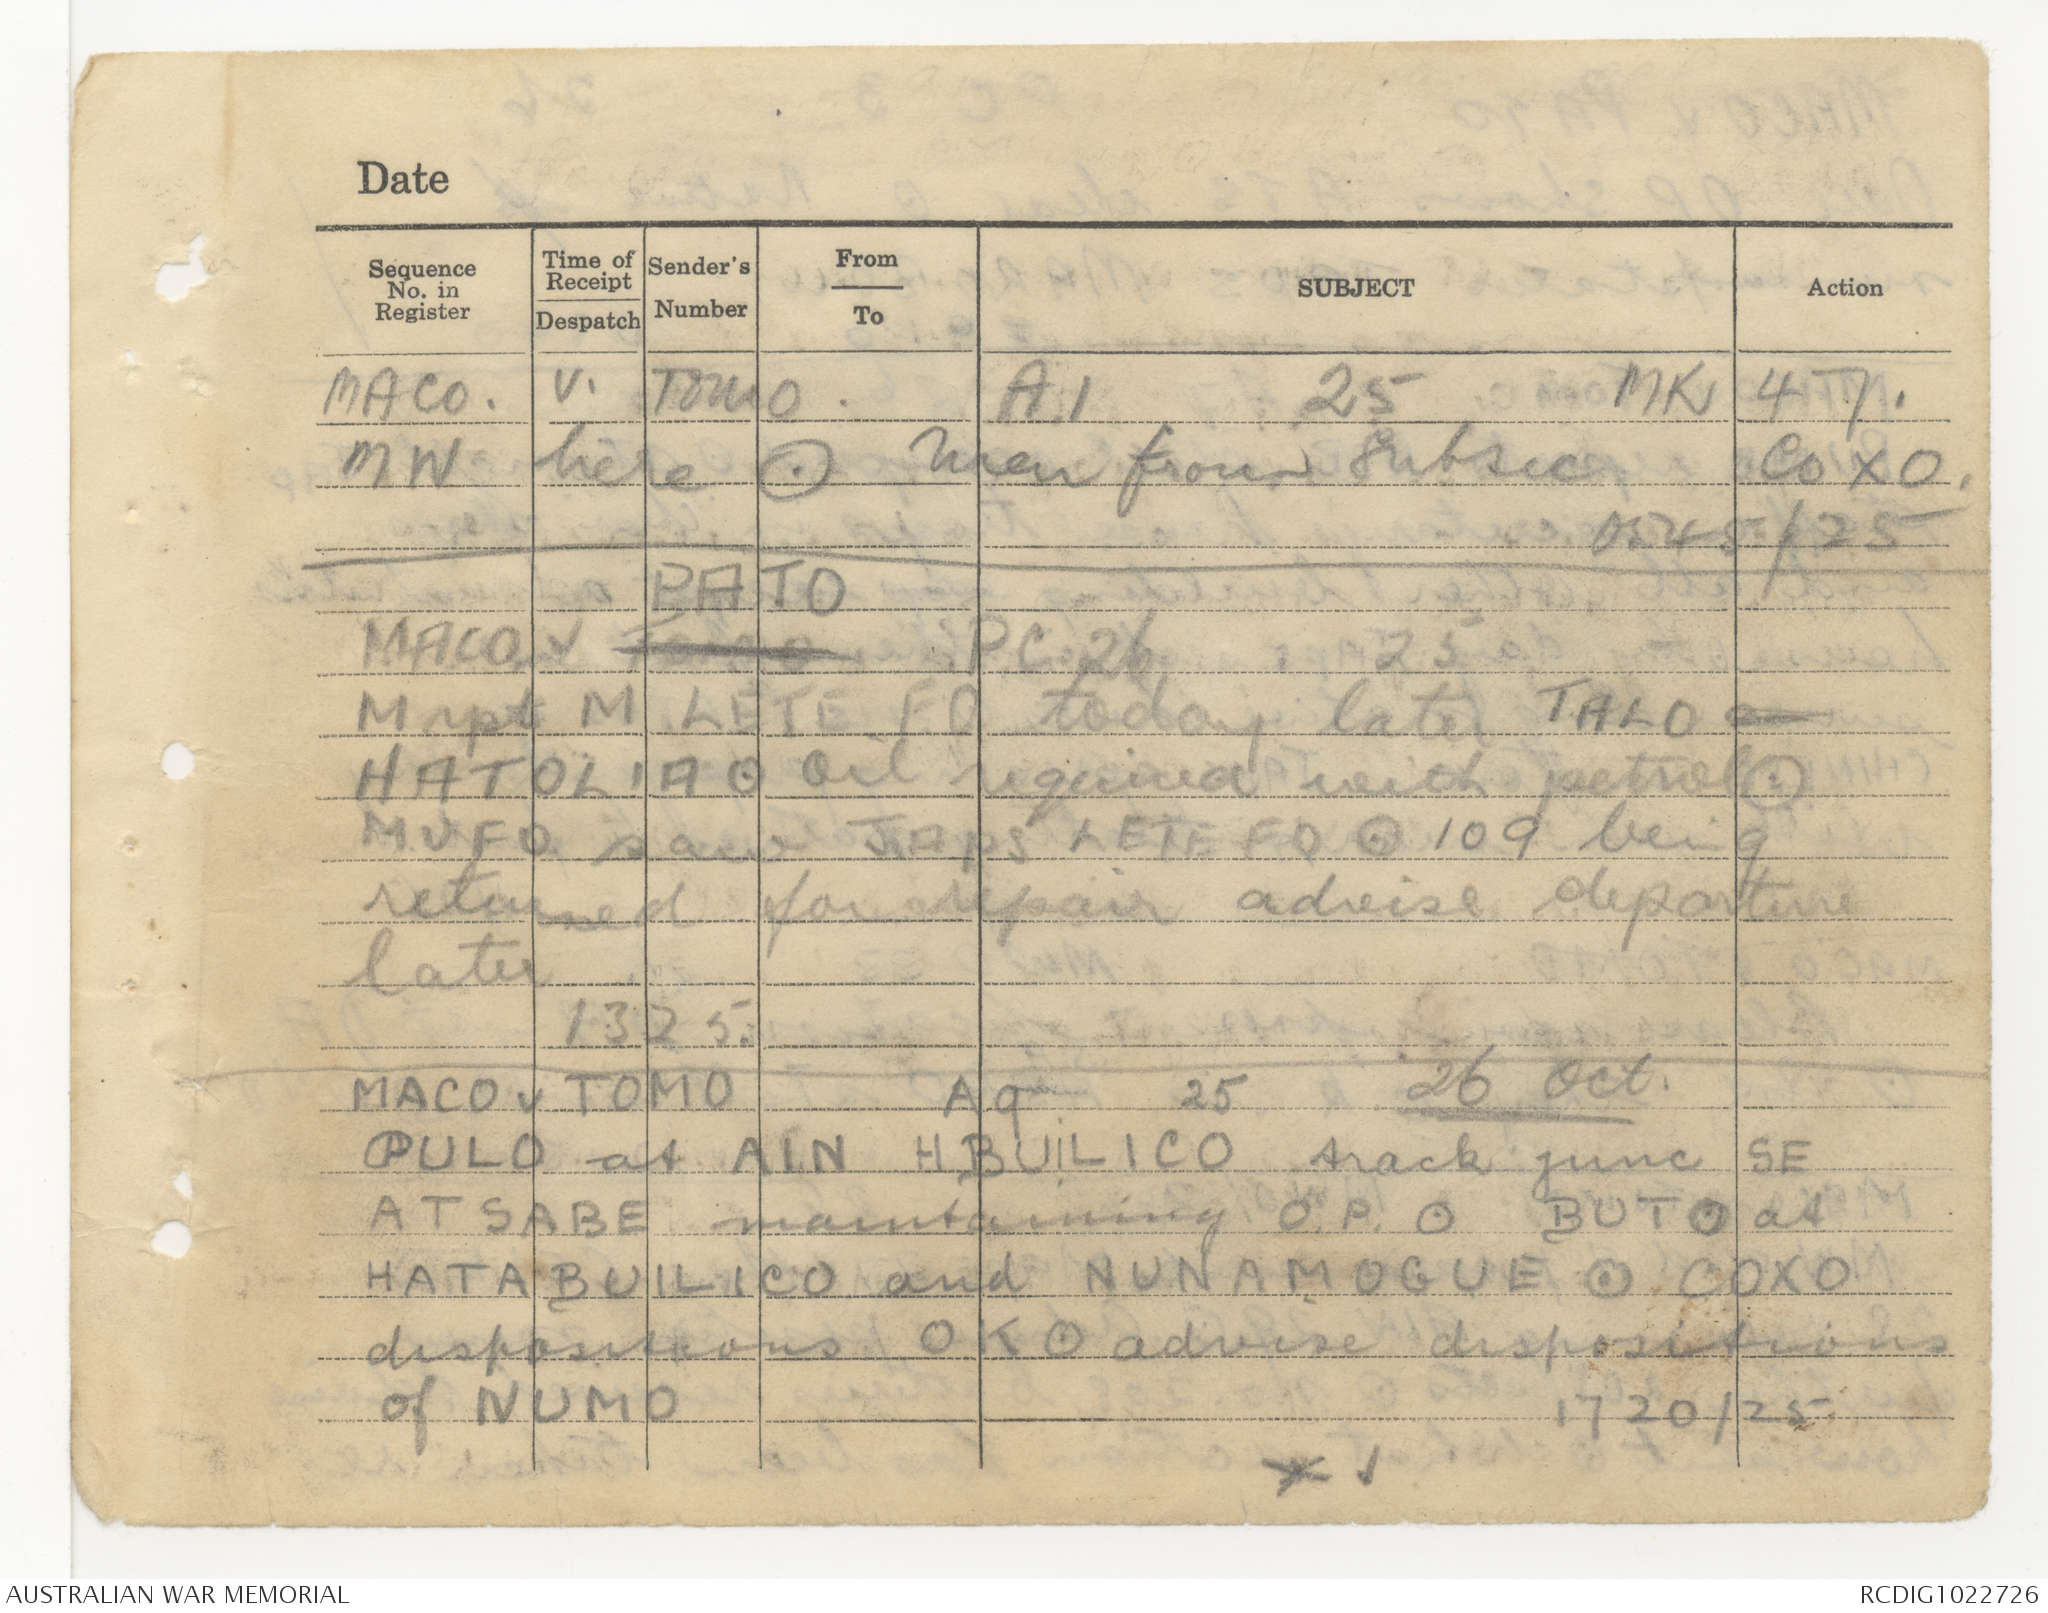 Date
Sequence No. in Register
Time of Receipt
Despatch
Sender's Number
From
To
SUBJECT
Action
MACO. v. TOMO. A.1 25 MK 47.
MW here ⊙ Men from Subsec COXO.
0545/25
PATO
MACO v PC 26 25
M rpt M LETE FO today later TALO
HATOLIA ⊙ Oil required with petrol ⊙
MUFO saw JAPS LETE FO ⊙ 109 being
returned for repair advise departure
later
1325.
MACO v TOMO A9 25 26 Oct.
PULO at AIN HBUILICO track junc SE
ATSABE maintaining O.P. ⊙ BUTO at
HATABUILICO and NUNAMOGUE ⊙ COXO
dispositions OK ⊙ advise dispositions
of NUMO 1720/25
AUSTRALIAN WAR MEMORIAL
RCDIG1022726